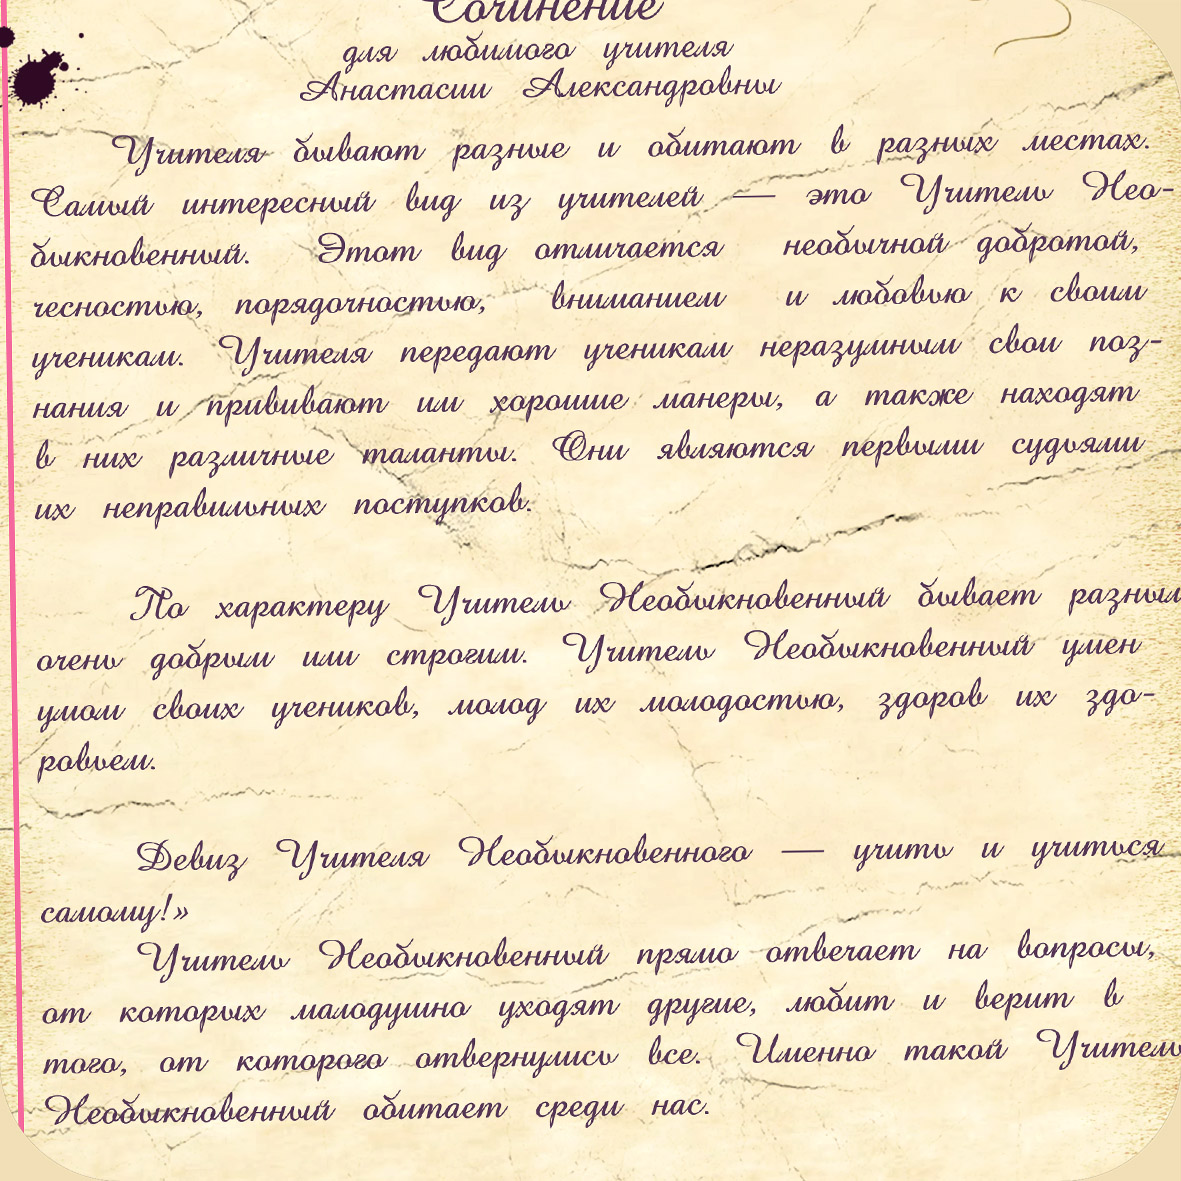 Сочинение
для любимого учителя
Анастасии Александровны
Учителя бывают разные и обитают в разных местах.
Самый интересный вид из учителей — это Учитель Нео-
быкновенный. Этот вид отличается необычной добротой,
чесностью, порядочностью, вниманием и любовью к своим
ученикам. Учителя передают ученикам неразумным свои поз-
нания и прививают им хорошие манеры, а также находят
в них различные таланты. Они являются первыми судьями
их неправильных поступков.
По характеру Учитель Необыкновенный бывает разным
очень добрым или строгим. Учитель Необыкновенный умен
умом своих учеников, молод их молодостью, здоров их здо-
ровьем.
Девиз Учителя Необыкновенного — учить и учиться
самому!»
Учитель Необыкновенный прямо отвечает на вопросы,
от которых малодушно уходят другие, любит и верит в
того, от которого отвернулись все. Именно такой Учитель
Необыкновенный обитает среди нас.